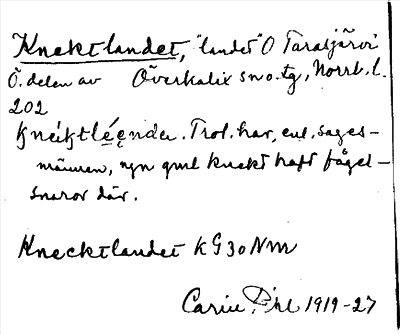 Knektlandet, "landet" O Taraljärvi
Ö. delen av Överkalix sn o. tg, Norrb. l.
202
Trol. har, enl. sages-
männen, ngn gml knekt haft fågel-
snaror där.
Knecktlandet KG 30 NM
Carin Pihl 1919-27